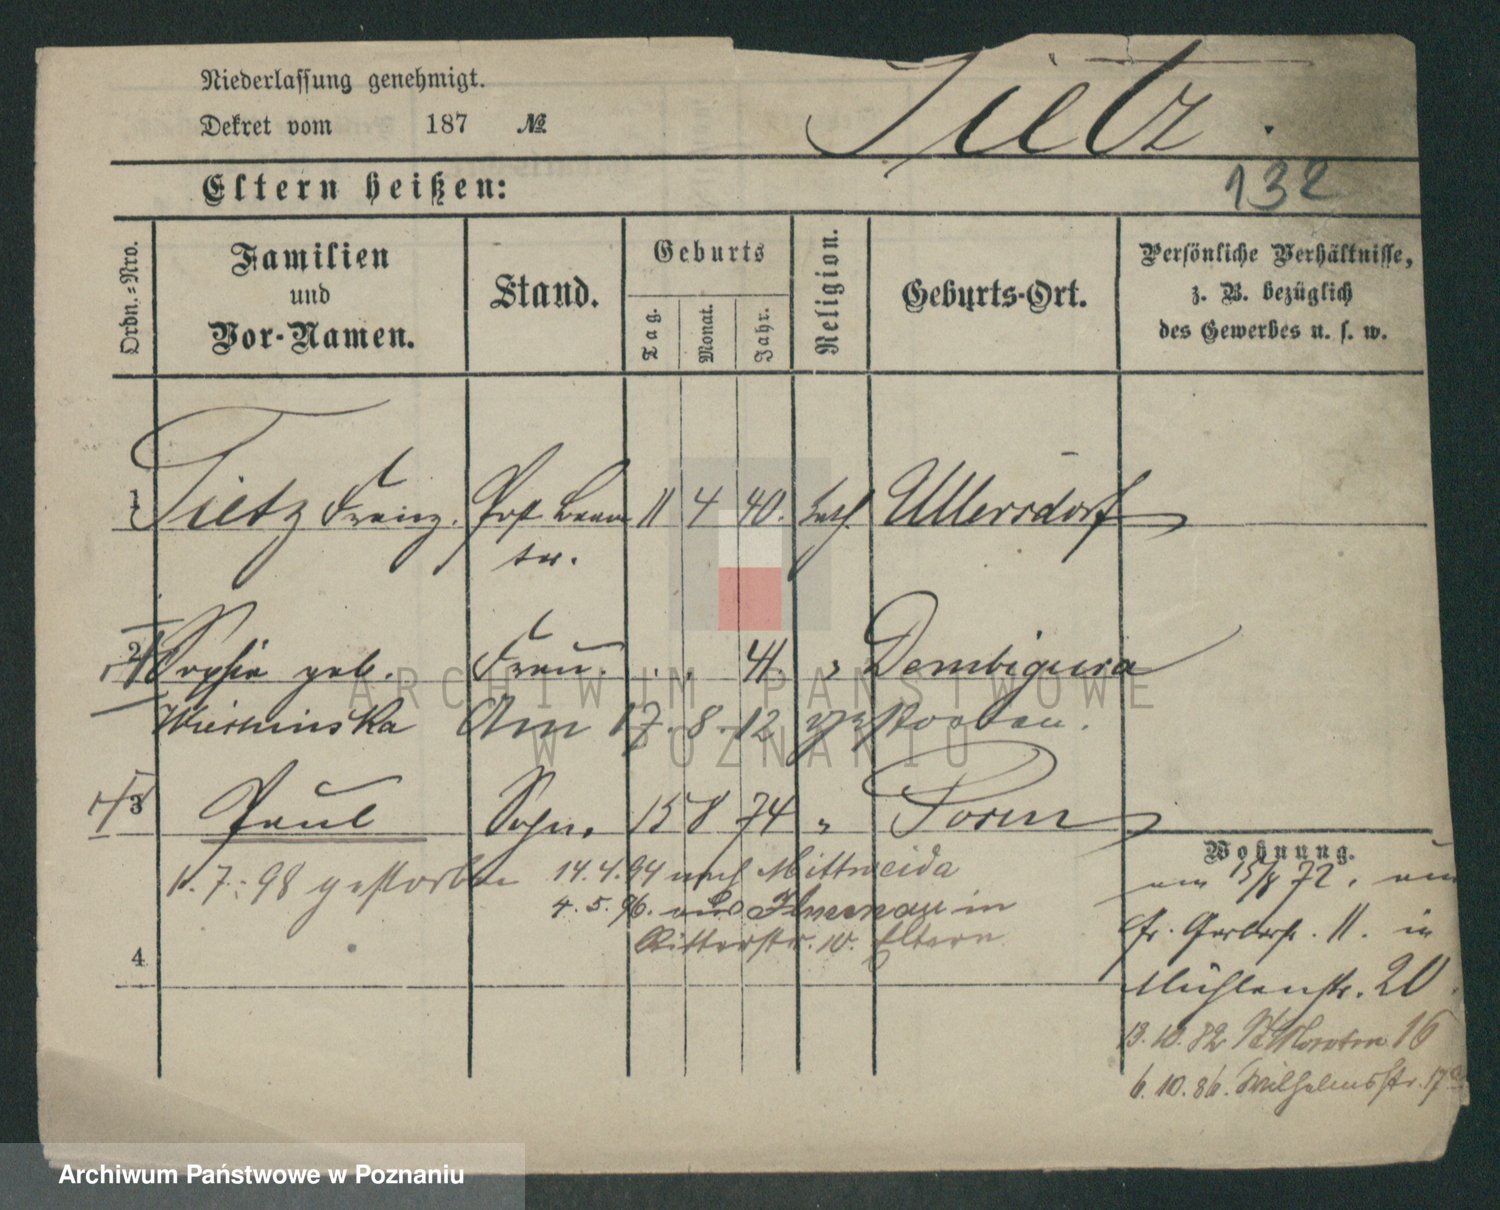 Niederlassung genehmigt.
Dekret vom 187 №
Tietz.
132
Eltern heißen:
Ordn.-Nro.
Familien
und
Vor-Namen.
Stand.
Geburts
Tag.
Monat.
Jahr.
Religion.
Geburts-Ort.
Persönliche Verhältnisse,
z. B. bezüglich
des Gewerbes u. s. w.
1 Tietz Franz. Post Beam 11 4 40. kath. Ullersdorf
ter.
2 Sophie geb. Frau. . . 41. " Dembigura
Wiesninska Am 17.8.12 gestorben.
3 Paul Sohn. 15 8 74 " Posen
1.7.98 gestorben 14.4.94 nach Mittweida
4.5.96. aus Ilmenau in
Ritterstr. 10. Eltern
4
Wohnung.
am 15/8 72.
fr. Gerberstr. 11. in
Mühlenstr. 20.
13.10.82 St Martin 16
6.10.86. Wilhelmsstr. 17
ARCHIWUM PAŃSTWOWE
W POZNANIU
Archiwum Państwowe w Poznaniu